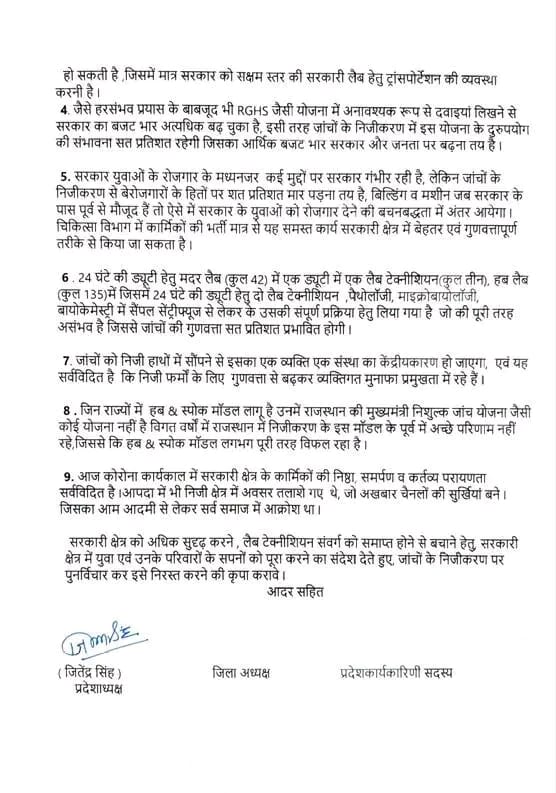 हो सकती है ,जिसमें मात्र सरकार को सक्षम स्तर की सरकारी लैब हेतु ट्रांसपोर्टेशन की व्यवस्था
करनी है ।
4. जैसे हरसंभव प्रयास के बाबजूद भी RGHS जैसी योजना में अनावश्यक रूप से दवाइयां लिखने से
सरकार का बजट भार अत्यधिक बढ़ चुका है, इसी तरह जांचों के निजीकरण में इस योजना के दुरुपयोग
की संभावना सत प्रतिशत रहेगी जिसका आर्थिक बजट भार सरकार और जनता पर बढ़ना तय है ।
5. सरकार युवाओं के रोजगार के मध्यनजर कई मुद्दों पर सरकार गंभीर रही है, लेकिन जांचों के
निजीकरण से बेरोजगारों के हितों पर शत प्रतिशत मार पड़ना तय है, बिल्डिंग व मशीन जब सरकार के
पास पूर्व से मौजूद हैं तो ऐसे में सरकार के युवाओं को रोजगार देने की बचनबद्धता में अंतर आयेगा ।
चिकित्सा विभाग में कार्मिकों की भर्ती मात्र से यह समस्त कार्य सरकारी क्षेत्र में बेहतर एवं गुणवत्तापूर्ण
तरीके से किया जा सकता है ।
6 . 24 घंटे की ड्यूटी हेतु मदर लैब (कुल 42) में एक ड्यूटी में एक लैब टेक्नीशियन(कुल तीन), हब लैब
(कुल 135)में जिसमें 24 घंटे की ड्यूटी हेतु दो लैब टेक्नीशियन ,पैथोलॉजी, माइक्रोबायोलॉजी,
बायोकेमेस्ट्री में सैंपल सेंट्रीफ्यूज से लेकर के उसकी संपूर्ण प्रक्रिया हेतु लिया गया है जो की पूरी तरह
असंभव है जिससे जांचों की गुणवत्ता सत प्रतिशत प्रभावित होगी ।
7. जांचों को निजी हाथों में सौंपने से इसका एक व्यक्ति एक संस्था का केंद्रीयकारण हो जाएगा, एवं यह
सर्वविदित है कि निजी फर्मों के लिए गुणवत्ता से बढ़कर व्यक्तिगत मुनाफा प्रमुखता में रहे हैं ।
8 . जिन राज्यों में हब & स्पोक मॉडल लागू है उनमें राजस्थान की मुख्यमंत्री निशुल्क जांच योजना जैसी
कोई योजना नहीं है विगत वर्षों में राजस्थान में निजीकरण के इस मॉडल के पूर्व में अच्छे परिणाम नहीं
रहे,जिससे कि हब & स्पोक मॉडल लगभग पूरी तरह विफल रहा है ।
9. आज कोरोना कार्यकाल में सरकारी क्षेत्र के कार्मिकों की निष्ठा, समर्पण व कर्तव्य परायणता
सर्वविदित है ।आपदा में भी निजी क्षेत्र में अवसर तलाशे गए थे, जो अखबार चैनलों की सुर्खियां बने ।
जिसका आम आदमी से लेकर सर्व समाज में आक्रोश था ।
सरकारी क्षेत्र को अधिक सुदृढ़ करने , लैब टेक्नीशियन संवर्ग को समाप्त होने से बचाने हेतु, सरकारी
क्षेत्र में युवा एवं उनके परिवारों के सपनों को पूरा करने का संदेश देते हुए, जांचों के निजीकरण पर
पुनर्विचार कर इसे निरस्त करने की कृपा करावे ।
आदर सहित
( जितेंद्र सिंह ) जिला अध्यक्ष प्रदेशकार्यकारिणी सदस्य
प्रदेशाध्यक्ष